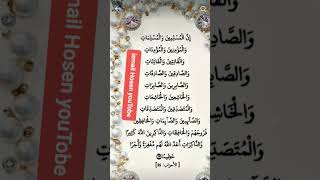 إِنَّ الْمُسْلِمِينَ وَالْمُسْلِمَاتِ
وَالْمُؤْمِنِينَ وَالْمُؤْمِنَاتِ
وَالْقَانِتِينَ وَالْقَانِتَاتِ
وَالصَّادِقِينَ وَالصَّادِقَاتِ
وَالصَّابِرِينَ وَالصَّابِرَاتِ
وَالْخَاشِعِينَ وَالْخَاشِعَاتِ
وَالْمُتَصَدِّقِينَ وَالْمُتَصَدِّقَاتِ
وَالصَّائِمِينَ وَالصَّائِمَاتِ وَالْحَافِظِينَ
فُرُوجَهُمْ وَالْحَافِظَاتِ وَالذَّاكِرِينَ اللَّهَ كَثِيرًا
وَالذَّاكِرَاتِ أَعَدَّ اللَّهُ لَهُم مَّغْفِرَةً وَأَجْرًا
عَظِيمًا
[الأحزاب: 35]
Ismail Hosen youTobe